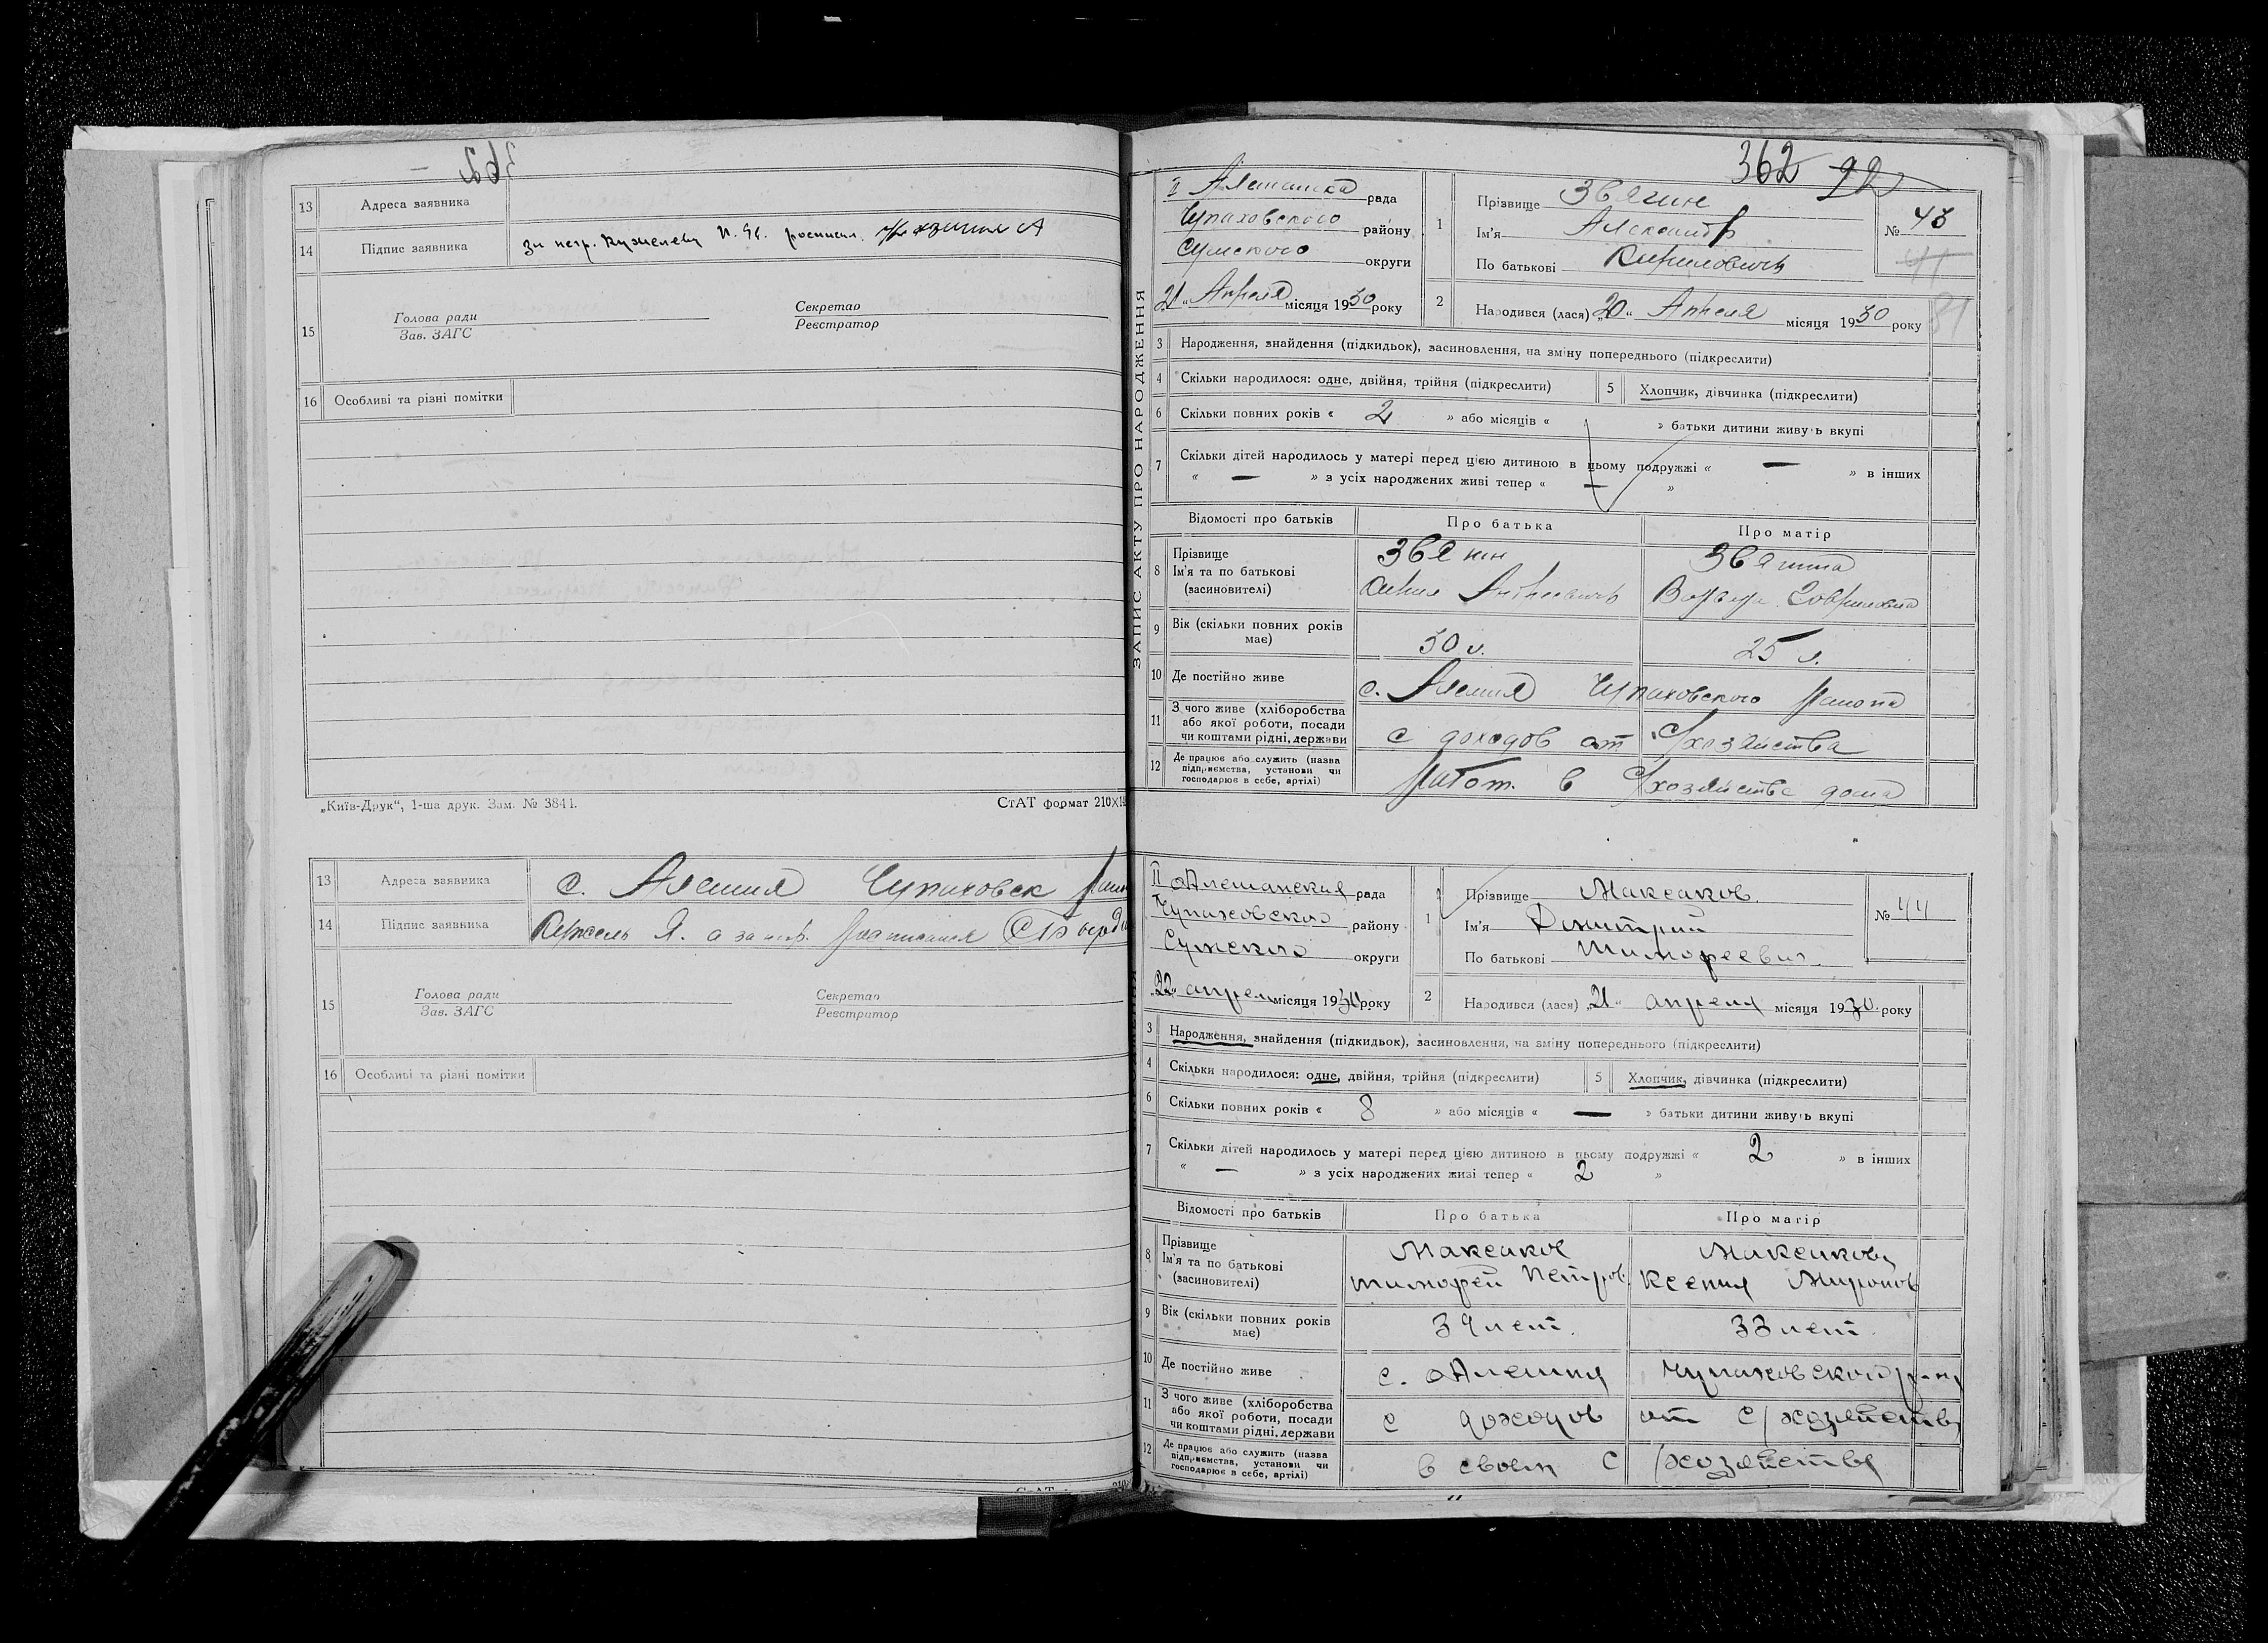 362
13 Адреса заявника
14 Підпис заявника за негр. росписал.
15 Голова ради Секретар
Зав. ЗАГС Реєстратор
16 Особливі та різні помітки
„Київ-Друк“, 1-ша друк. Зам. № 3841. СтАТ формат 210×14
13 Адреса заявника с. Алешня Чупаховск
14 Підпис заявника Кужель Я. а за негр. расписался
15 Голова ради Секретар
Зав. ЗАГС Реєстратор
16 Особливі та різні помітки
362 92
ЗАПИС АКТУ ПРО НАРОДЖЕННЯ
II рада
Чупаховского району
Сумского округи
21 „ Апреля місяця 1930 року
1 Прізвище Звягин
Ім'я Александр
По батькові Кирилович
№ 43
41
31
2 Народився (лася) „20“ Апреля місяця 1930 року
3 Народження, знайдення (підкидьок), засиновлення, на зміну попереднього (підкреслити)
4 Скільки народилося: одне, двійня, трійня (підкреслити) 5 Хлопчик, дівчинка (підкреслити)
6 Скільки повних років « 2 » або місяців « » батьки дитини живуть вкупі
7 Скільки дітей народилось у матері перед цією дитиною в цьому подружжі « — » в інших
« — » з усіх народжених живі тепер « — »
Відомості про батьків Про батька Про матір
8 Прізвище Звягин Звягина
Ім'я та по батькові
(засновителі) Кирил Андреевич Гавриловна
9 Вік (скільки повних років має) 30 л. 25 л.
10 Де постійно живе с. Алешня Чупаховского района
11 З чого живе (хліборобства або якої роботи, посади чи коштами рідні, держави с доходов от С/хозяйства
12 Де працює або служить (назва підприємства, установи чи господарює в себе, артілі) работ. в С/хозяйстве дома
II Алешанская рада
Чупаховского району
Сумского округи
„22“ апреля місяця 1930 року
1 Прізвище Максаков
Ім'я Дмитрий
По батькові Тимофеевич.
№ 44
2 Народився (лася) „21“ апреля місяця 1930. року
3 Народження, знайдення (підкидьок), засиновлення, на зміну попереднього (підкреслити)
4 Скільки народилося: одне, двійня, трійня (підкреслити) 5 Хлопчик, дівчинка (підкреслити)
6 Скільки повних років « 8 » або місяців « — » батьки дитини живуть вкупі
7 Скільки дітей народилось у матері перед цією дитиною в цьому подружжі « 2 » в інших
« — » з усіх народжених живі тепер « 2 »
Відомості про батьків Про батька Про матір
8 Прізвище Максаков Максакова
Ім'я та по батькові Тимофей Петров. Ксения Миронов
(засиновителі)
9 Вік (скільки повних років має) 39 лет. 33 лет.
10 Де постійно живе с. Алешня Чупаховского р-на
11 З чого живе (хліборобства або якої роботи, посади чи коштами рідні, держави с доходов от С/хозяйства
12 Де працює або служить (назва підприємства, установи чи господарює в себе, артілі) в своем С/хозяйства